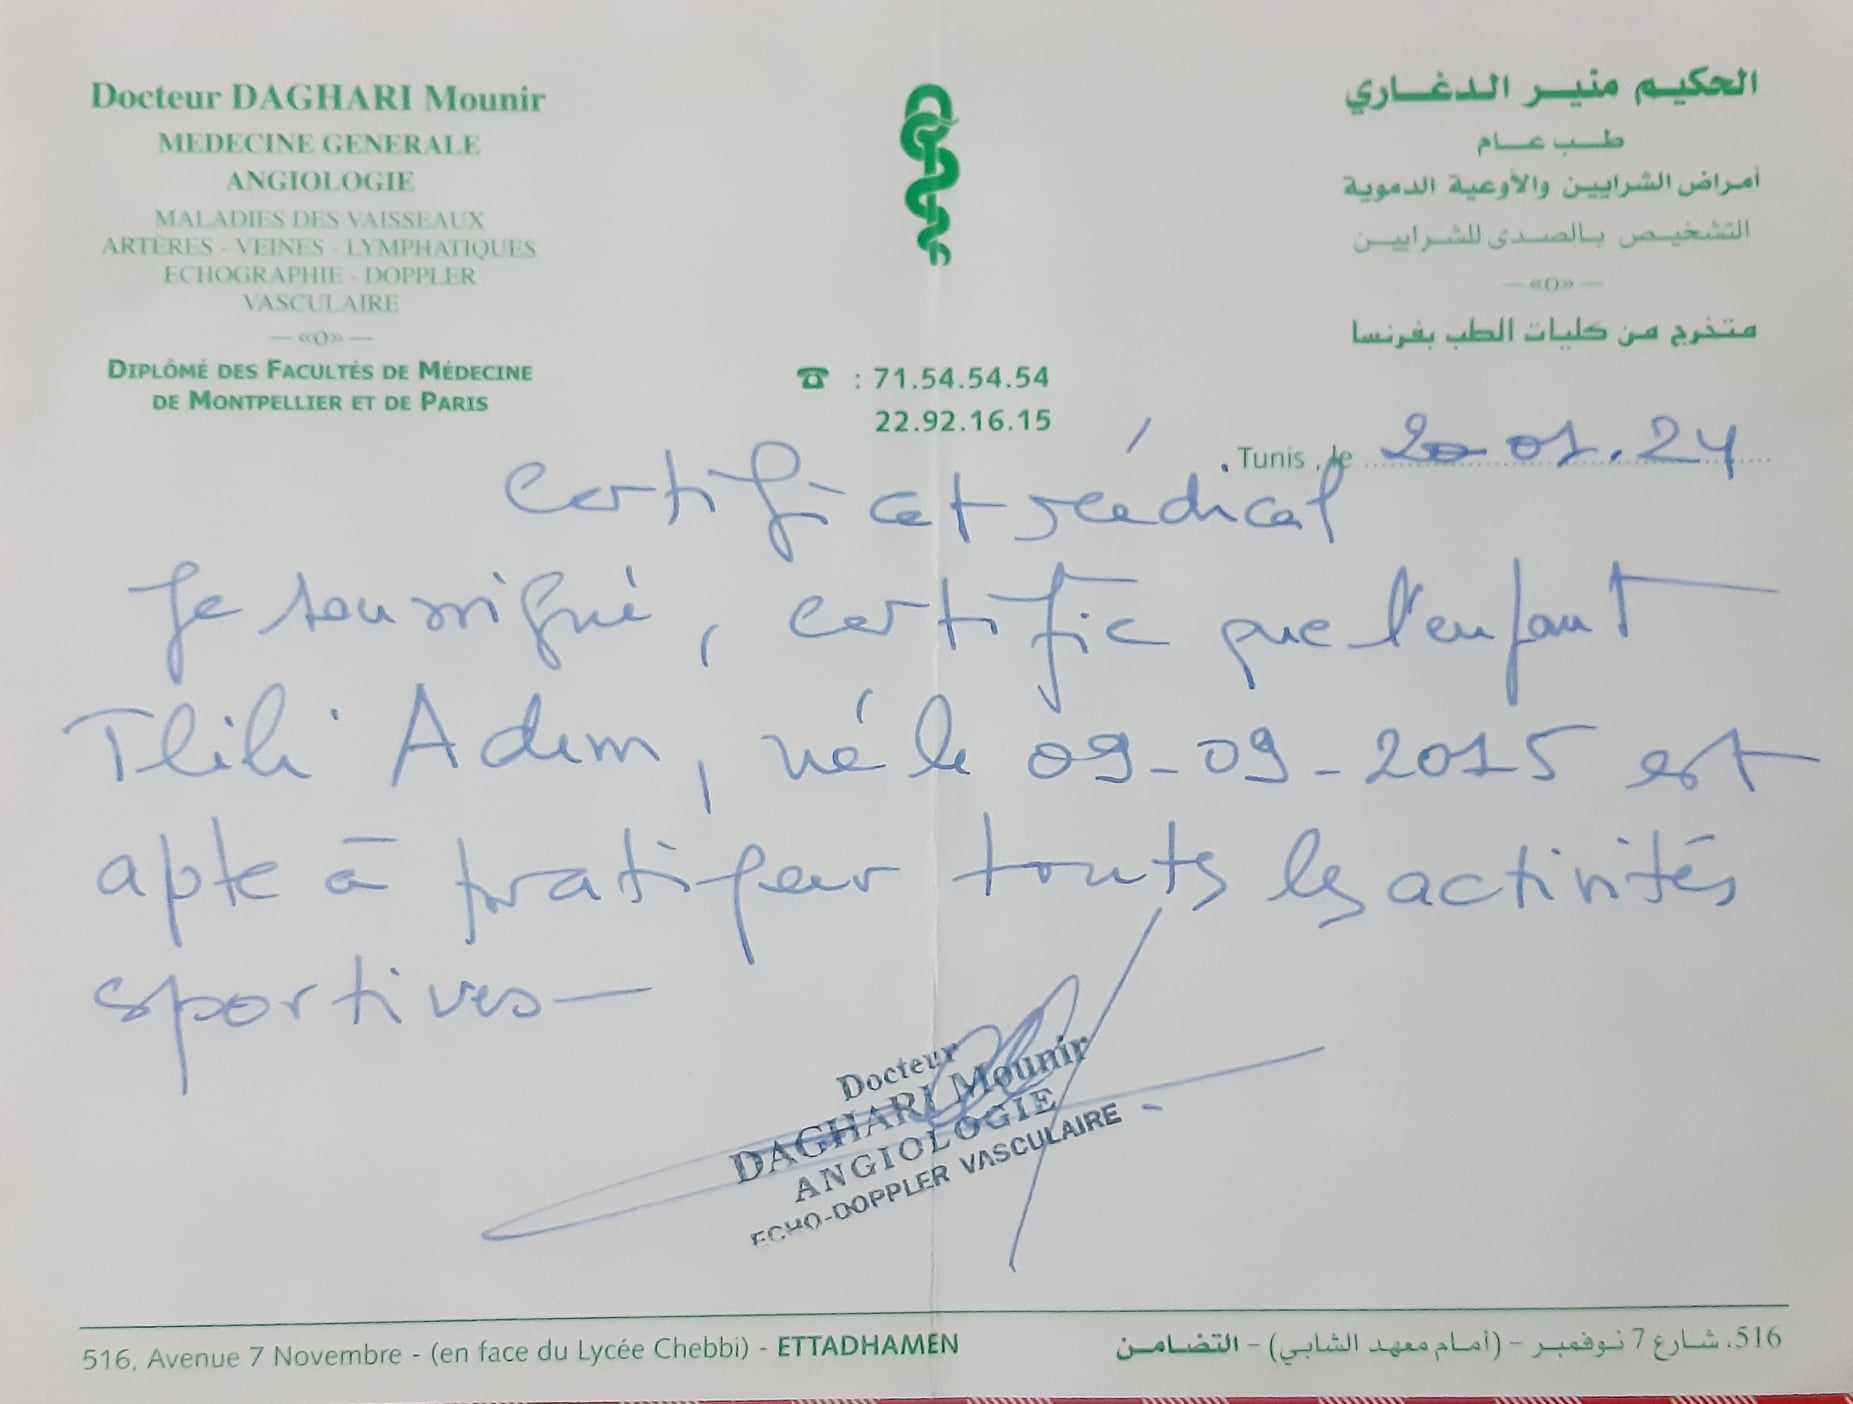 Docteur DAGHARI Mounir
MEDECINE GENERALE
ANGIOLOGIE
MALADIES DES VAISSEAUX
ARTÈRES - VEINES - LYMPHATIQUES
ECHOGRAPHIE - DOPPLER
VASCULAIRE
— «O» —
DIPLÔMÉ DES FACULTÉS DE MÉDECINE
DE MONTPELLIER ET DE PARIS
الحكيم منير الدغاري
طب عام
أمراض الشرايين والأوعية الدموية
التشخيص بالصدى للشرايين
— «O» —
متخرج من كليات الطب بفرنسا
☎ : 71.54.54.54
22.92.16.15
Tunis, le 20.01.24
Certificat médical
Je soussigné, certifie que l'enfant
Tlili Adem, né le 09-09-2015 est
apte à pratiquer touts les activités
sportives—
Docteur
DAGHARI Mounir
ANGIOLOGIE
ECHO-DOPPLER VASCULAIRE
516, Avenue 7 Novembre - (en face du Lycée Chebbi) - ETTADHAMEN
516، شارع 7 نوفمبر - (أمام معهد الشابي) - التضامن